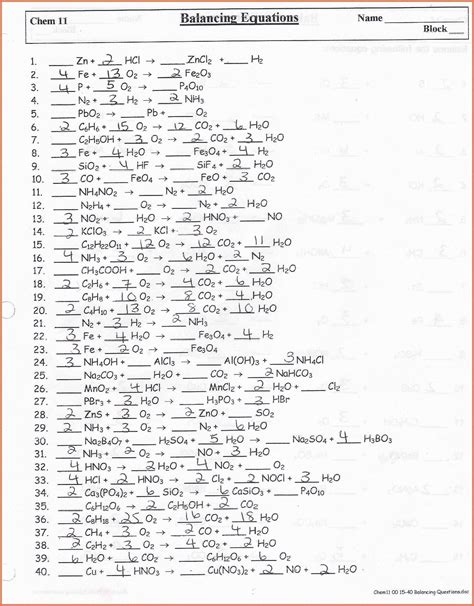 Chem 11 Balancing Equations Name ________
Block ___
1. ___ Zn + 2 HCl → ___ ZnCl2 + ___ H2
2. 4 Fe + 13 O2 → 2 Fe2O3
3. 4 P + 5 O2 → ___ P4O10
4. ___ N2 + 3 H2 → 2 NH3
5. ___ PbO2 → ___ Pb + ___ O2
6. 2 C6H6 + 15 O2 → 12 CO2 + 6 H2O
7. ___ C2H5OH + 3 O2 → 2 CO2 + 3 H2O
8. 3 Fe + 4 H2O → ___ Fe3O4 + 4 H2
9. ___ SiO2 + 4 HF → ___ SiF4 + 2 H2O
10. 3 CO + ___ FeO4 → ___ FeO + 3 CO2
11. ___ NH4NO2 → ___ N2 + 2 H2O
12. ___ N2H4 + ___ O2 → ___ N2 + 2 H2O
13. 3 NO2 + ___ H2O → 2 HNO3 + ___ NO
14. 2 KClO3 → 2 KCl + 3 O2
15. ___ C12H22O11 + 12 O2 → 12 CO2 + 11 H2O
16. 4 NH3 + 3 O2 → 6 H2O + 2 N2
17. ___ CH3COOH + ___ O2 → 2 CO2 + 2 H2O
18. 2 C2H6 + 7 O2 → 4 CO2 + 6 H2O
19. ___ C6H8 + 10 O2 → 8 CO2 + H2O
20. O2 → CO2 + H2O
21. ___ N2 + 3 H2 → 2 NH3
22. 3 Fe + 4 H2O → ___ Fe3O4 + 4 H2
23. 3 Fe + 2 O2 → ___ Fe3O4
24. 3 NH4OH + ___ AlCl3 → ___ Al(OH)3 + 3 NH4Cl
25. ___ Na2CO3 + ___ H2O + ___ CO2 → 2 NaHCO3
26. ___ MnO2 + 4 HCl → ___ MnCl2 + 2 H2O + ___ Cl2
27. ___ PBr3 + 3 H2O → ___ H3PO3 + 3 HBr
28. 2 ZnS + 3 O2 → 2 ZnO + ___ SO2
30. ___ Na2B4O7 + ___ H2SO4 + 5 H2O → ___ Na2SO4 + 4 H3BO3
31. ___ N2H3 + 2 O2 → ___ HNO3 + ___ H2O
32. 4 HNO3 → 2 H2O + 4 NO2 + ___ O2
33. 3 HCl + HNO3 → 2 H2O + 2 NOCl + 3 Cl2
34. 2 Ca3(PO4)2 + 6 SiO2 → 6 CaSiO3 + ___ P4O10
35. ___ C6H12O6 → 2 C2H5OH + 2 CO2
36. 2 C8H18 + 25 O2 → 16 CO2 + 18 H2O
37. 2 CH4 + 3 O2 → 2 CO + 4 H2O
38. C2H2 + 3 O2 → 4 CO + 2 H2O
39. 6 CO2 + 6 H2O → ___ C6H12O6 + 6 O2
40. ___ Cu + 4 HNO3 → ___ Cu(NO3)2 + 2 NO2 + 2 H2O
Chem11 OO 15-40 Balancing Questions.doc